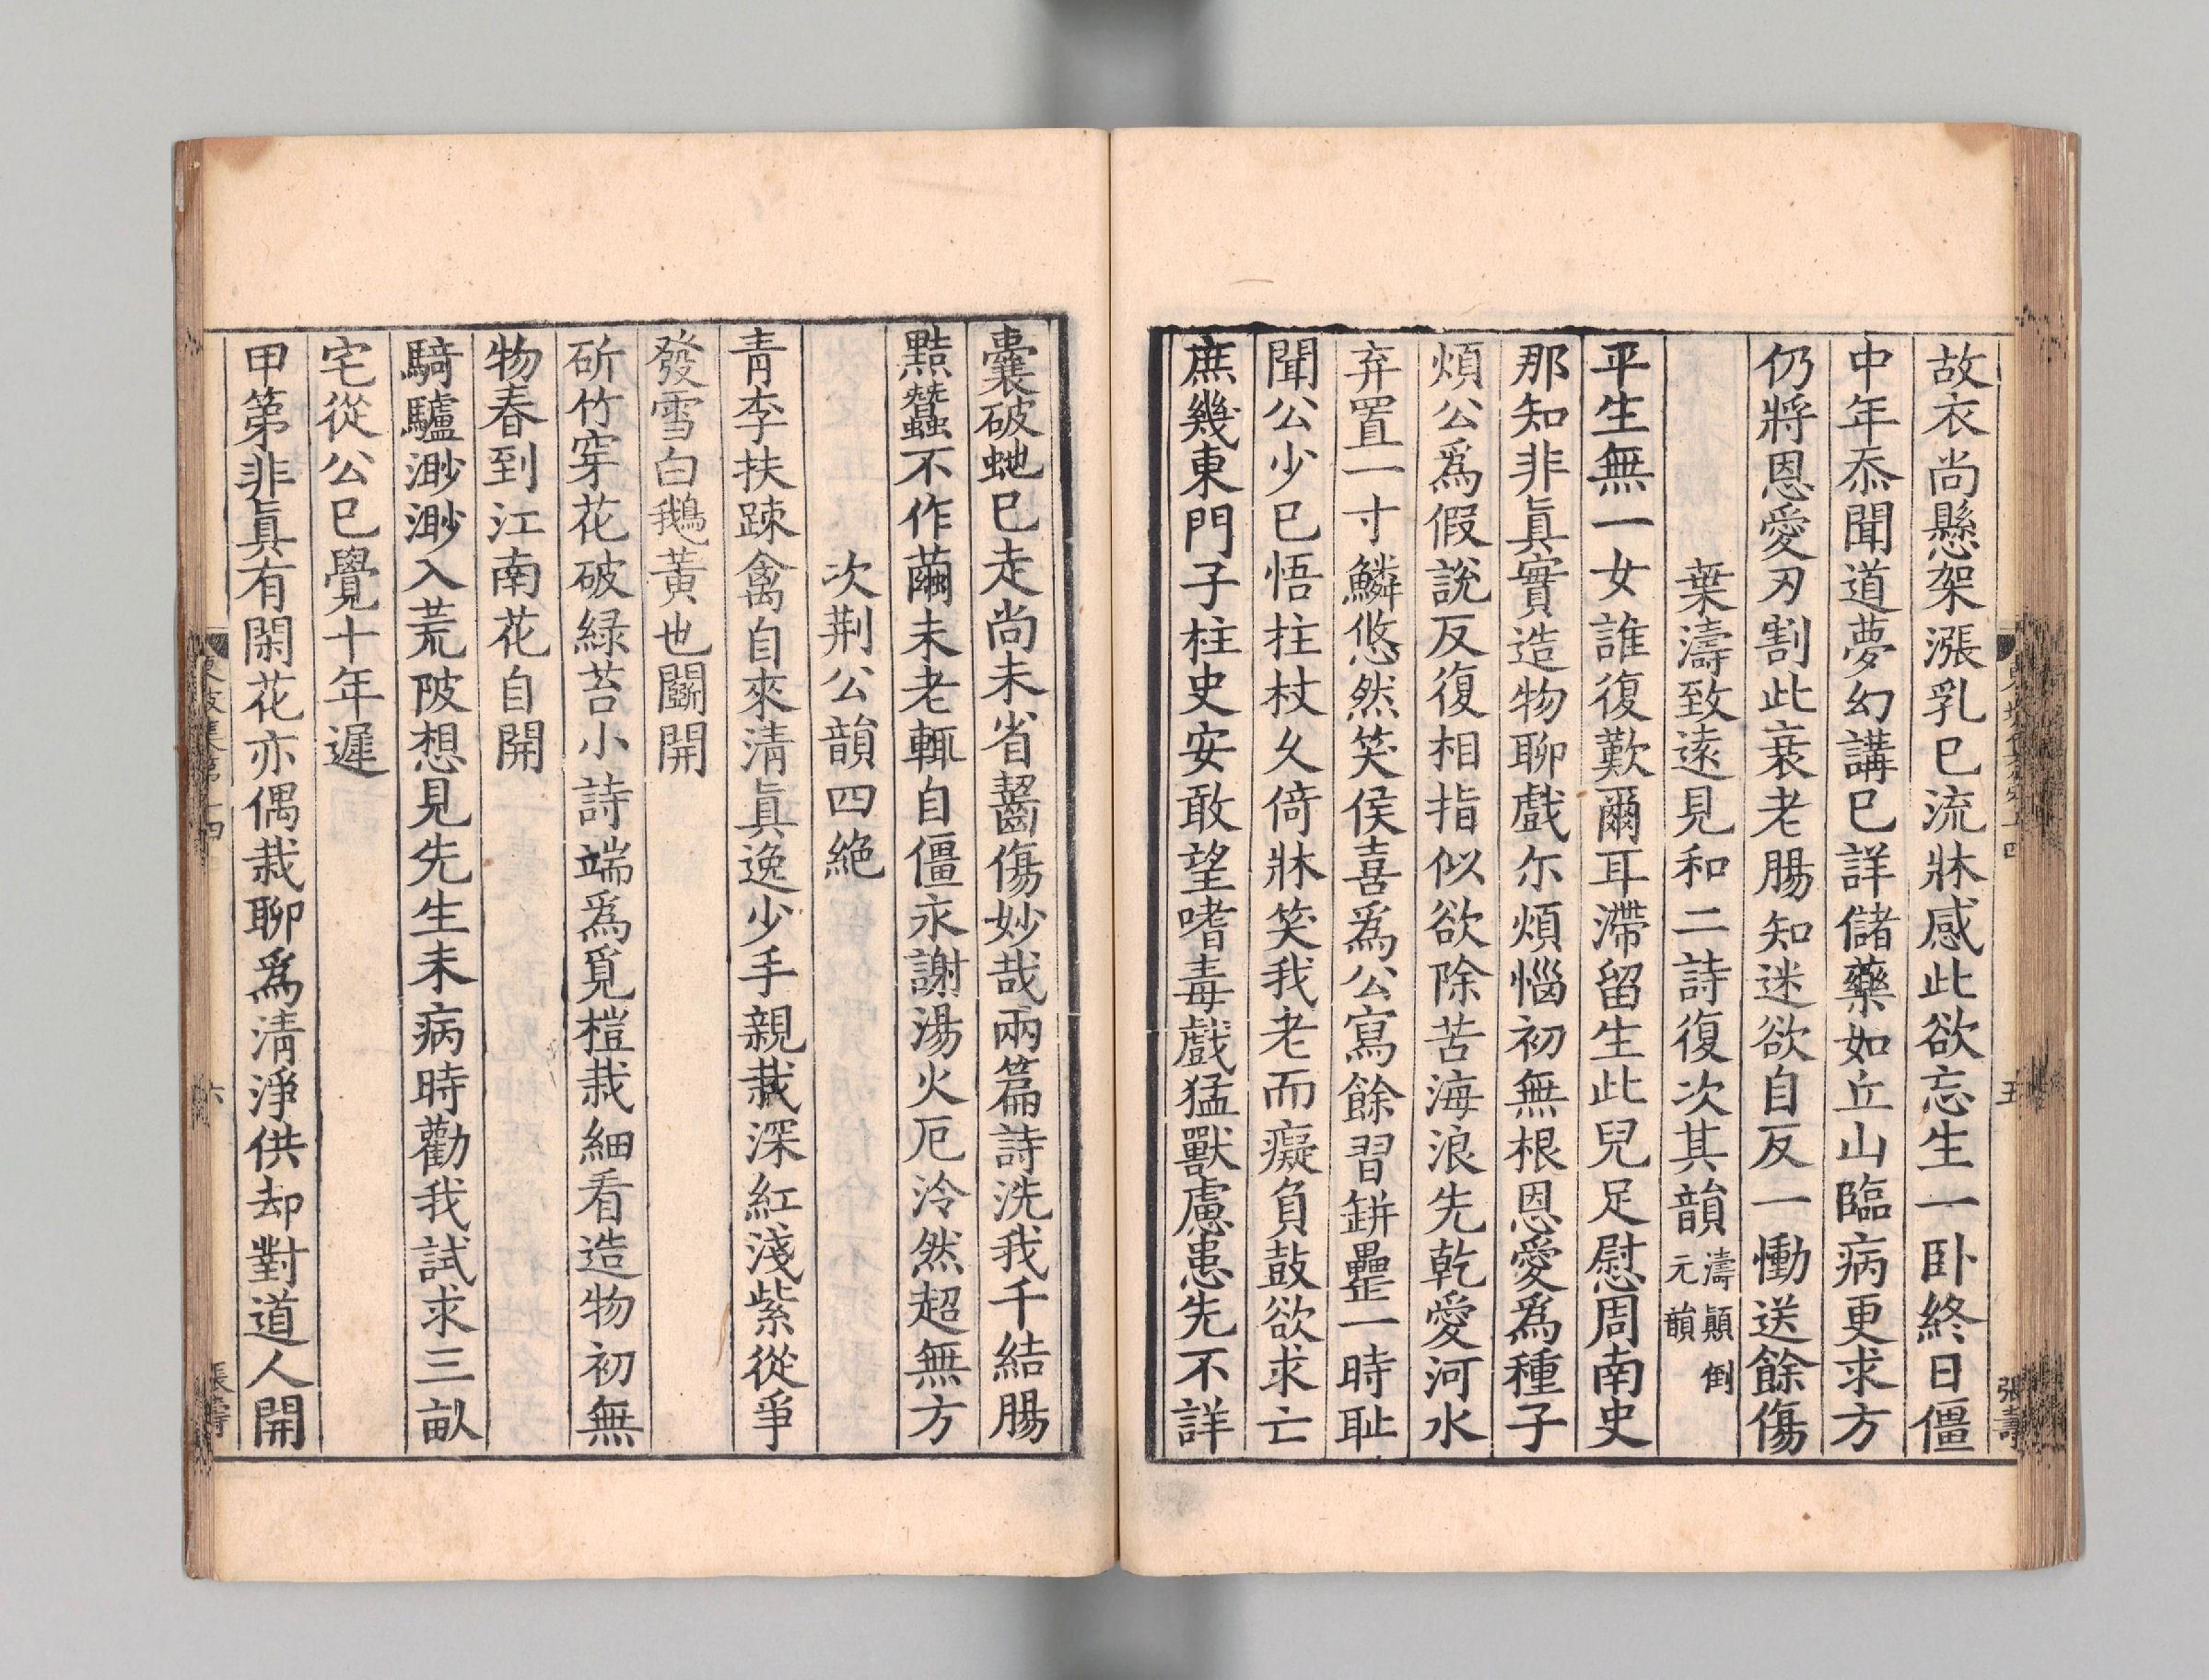 故衣尚懸架漲乳已流牀感此欲忘生一卧終日僵
中年忝聞道夢幻講已詳儲藥如丘山臨病更求方
仍將恩愛刃割此衰老腸知迷欲自反一慟送餘傷
葉濤致遠見和二詩復次其韻濤顛倒元韻
平生無一女誰復歎爾耳滯留生此兒足慰周南史
那知非眞實造物聊戲尓煩惱初無根恩愛爲種子
煩公爲假說反復相指似欲除苦海浪先乾愛河水
弃置一寸鱗悠然笑侯喜爲公寫餘習缾罍一時耻
聞公少已悟拄杖久倚牀笑我老而癡負鼓欲求亡
庶幾東門子柱史安敢望嗜毒戲猛獸慮患先不詳
囊破虵已走尚未省齧傷妙哉兩篇詩洗我千結腸
黠蠶不作繭未老輒自僵永謝湯火厄泠然超無方
次荆公韻四絶
青李扶疎禽自來清眞逸少手親栽深紅淺紫從爭
發雪白鵝黃也鬬開
斫竹穿花破綠苔小詩端爲覓榿栽細看造物初無
物春到江南花自開
騎驢渺渺入荒陂想見先生未病時勸我試求三畝
宅從公已覺十年遲
甲第非眞有閑花亦偶栽聊爲清淨供却對道人開
五
張壽
六